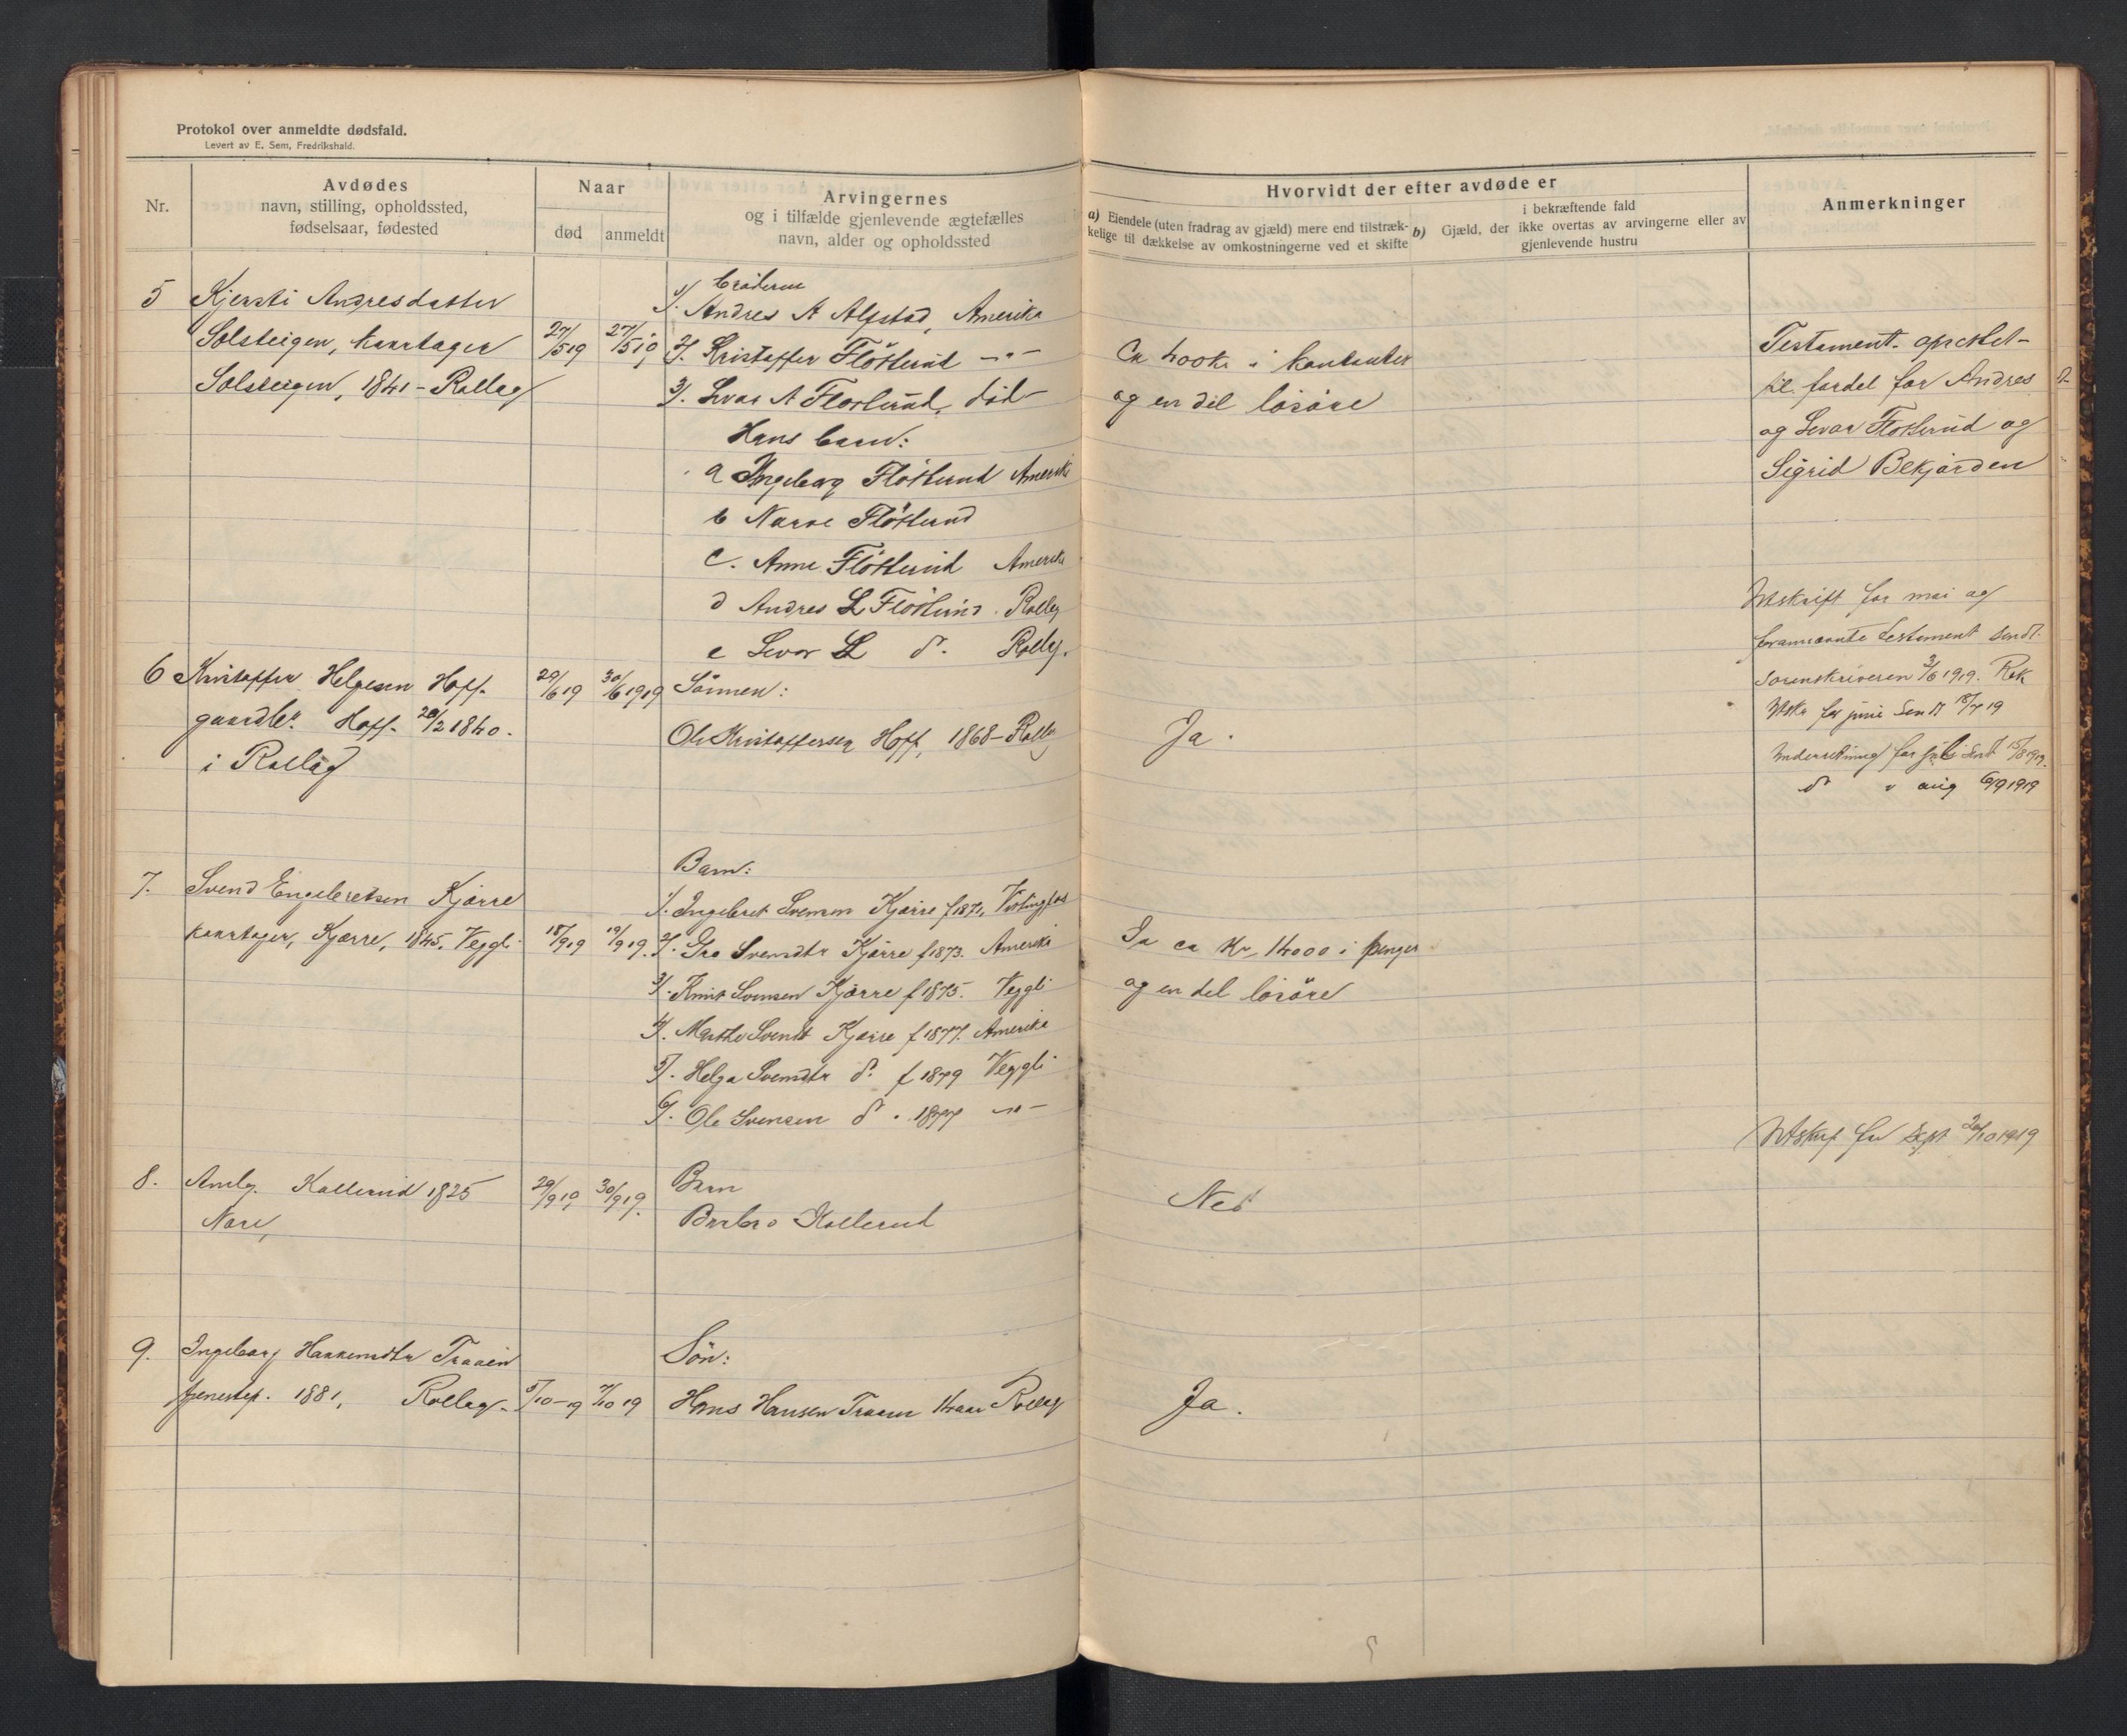 Protokol over anmeldte dødsfald.
Levert av E. Sem, Fredrikshald.
Nr.
Avdødes
navn, stilling, opholdssted,
fødselsaar, fødested
Naar
død
anmeldt
Arvingernes
og i tilfælde gjenlevende ægtefælles
navn, alder og opholdssted
Hvorvidt der efter avdøde er
a) Eiendele (uten fradrag av gjæld) mere end tilstræk-
kelige til dækkelse av omkostningerne ved et skifte
i bekræftende fald
b) Gjæld, der ikke overtas av arvingerne eller av
gjenlevende hustru
Anmerkninger
5 Kjersti Andresdatter
Solsteigen, kaartager
Solsteigen, 1841 - Rollag
27/5 19 27/5 19
Brödrene
1/. Andres A Alfstad, Amerika
2/. Kristoffer Flöterud -"-
3/. Levor A Floterud, död-
Hans barn:
a Ingeborg Flöterud Amerika
b Narve Flöterud
c. Anne Flöterud Amerika
d Andres L Flöterud. Rollag
e Levor L do. Rollag.
Ca 400 kr i kontanter
og en del lösöre
Testament oprettet
til fordel for Andres
og Levor Floterud og
Sigrid Bekjorden
Utskrift for mai og
forannævnte testament sendt
Sorenskriveren 3/6 1919. Rek
Utskr for juni sendt 18/7 19
Underretning for juli sendt 15/8 1919.
do " aug 6/9 1919
6 Kristoffer Helgesen Hoff
gaardbr. Hoff. 28/2 1840.
i Rollag
29/6 19 30/6 1919
Sönnen:
Ole Kristoffersen Hoff, 1868 - Rollag
Ja.
7. Svend Engebretsen Kjærre
kaartager, Kjærre, 1845. Veggli
18/9 19 19/9 19.
Barn:
1/. Ingebret Svensen Kjærre f 1871,
2/. Gro Svendtr Kjærre f 1873. Amerika
3/. Knut Svensen Kjærre f 1875. Veggli
4/. Marthe Svendt Kjærre f 1877. Amerika
5/. Helga Svendtr do. f 1879 Veggli
6/. Ole Svensen do. 1877 -"-
Ja ca Kr 14000 i penger
og en del lösöre
Utskrf for Sept 2/10 1919
8. Kollerud 1825
Nore,
29/9 19 30/9 19.
Barn
Barbro Kollerud
Nei
9. Ingeborg Haakensdtr Traaen
tjenestep. 1881, Rollag.
5/10-19 7/10 19
Sön:
Hans Hansen Traaen 14 aar Rollag
Ja.